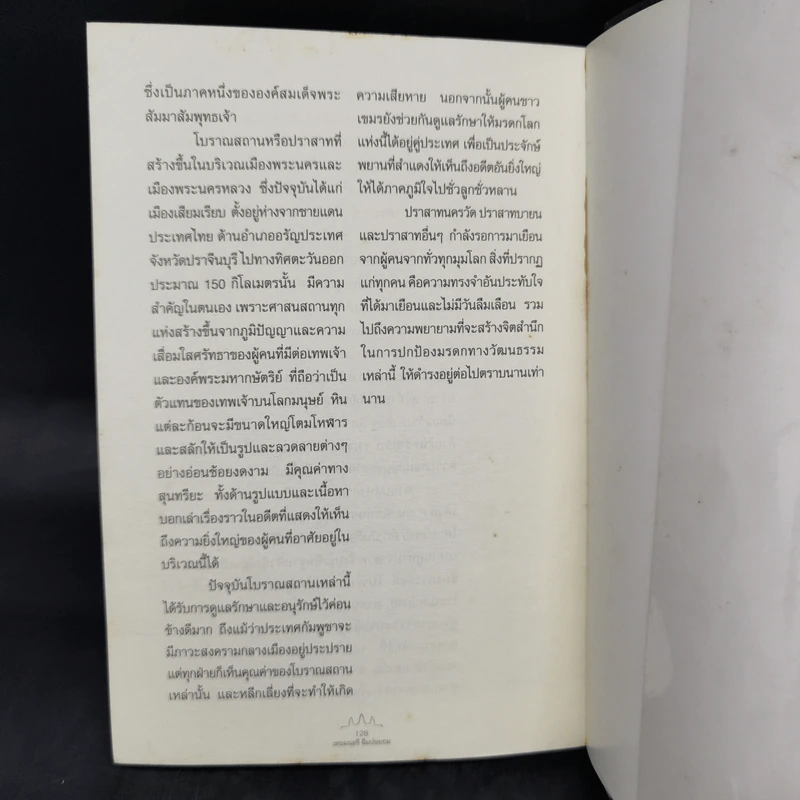 ซึ่งเป็นภาคหนึ่งขององค์สมเด็จพระ
สัมมาสัมพุทธเจ้า
โบราณสถานหรือปราสาทที่
สร้างขึ้นในบริเวณเมืองพระนครและ
เมืองพระนครหลวง ซึ่งปัจจุบันได้แก่
เมืองเสียมเรียบ ตั้งอยู่ห่างจากชายแดน
ประเทศไทย ด้านอำเภออรัญประเทศ
จังหวัดปราจีนบุรี ไปทางทิศตะวันออก
ประมาณ 150 กิโลเมตรนั้น มีความ
สำคัญในตนเอง เพราะศาสนสถานทุก
แห่งสร้างขึ้นจากภูมิปัญญาและความ
เลื่อมใสศรัทธาของผู้คนที่มีต่อเทพเจ้า
และองค์พระมหากษัตริย์ ที่ถือว่าเป็น
ตัวแทนของเทพเจ้าบนโลกมนุษย์ หิน
แต่ละก้อนจะมีขนาดใหญ่โตมโหฬาร
และสลักให้เป็นรูปและลวดลายต่างๆ
อย่างอ่อนช้อยงดงาม มีคุณค่าทาง
สุนทรียะ ทั้งด้านรูปแบบและเนื้อหา
บอกเล่าเรื่องราวในอดีตที่แสดงให้เห็น
ถึงความยิ่งใหญ่ของผู้คนที่อาศัยอยู่ใน
บริเวณนี้ได้
ปัจจุบันโบราณสถานเหล่านี้
ได้รับการดูแลรักษาและอนุรักษ์ไว้ค่อน
ข้างดีมาก ถึงแม้ว่าประเทศกัมพูชาจะ
มีภาวะสงครามกลางเมืองอยู่ประปราย
แต่ทุกฝ่ายก็เห็นคุณค่าของโบราณสถาน
เหล่านั้น และหลีกเลี่ยงที่จะทำให้เกิด
ความเสียหาย นอกจากนั้นผู้คนชาว
เขมรยังช่วยกันดูแลรักษาให้มรดกโลก
แห่งนี้ได้อยู่คู่ประเทศ เพื่อเป็นประจักษ์
พยานที่สำแดงให้เห็นถึงอดีตอันยิ่งใหญ่
ให้ได้ภาคภูมิใจไปชั่วลูกชั่วหลาน
ปราสาทนครวัด ปราสาทบายน
และปราสาทอื่นๆ กำลังรอการมาเยือน
จากผู้คนจากทั่วทุกมุมโลก สิ่งที่ปรากฏ
แก่ทุกคน คือความทรงจำอันประทับใจ
ที่ได้มาเยือนและไม่มีวันลืมเลือน รวม
ไปถึงความพยายามที่จะสร้างจิตสำนึก
ในการปกป้องมรดกทางวัฒนธรรม
เหล่านี้ ให้ดำรงอยู่ต่อไปตราบนานเท่า
นาน
128